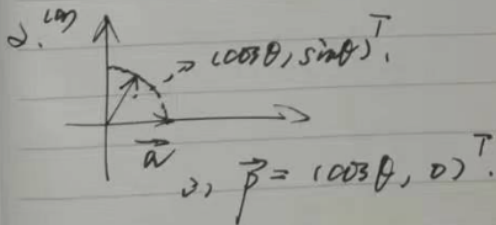 2. (1)
2) (cosθ, sinθ)ᵀ.
a⃗
3) p⃗ = (cosθ, 0)ᵀ.